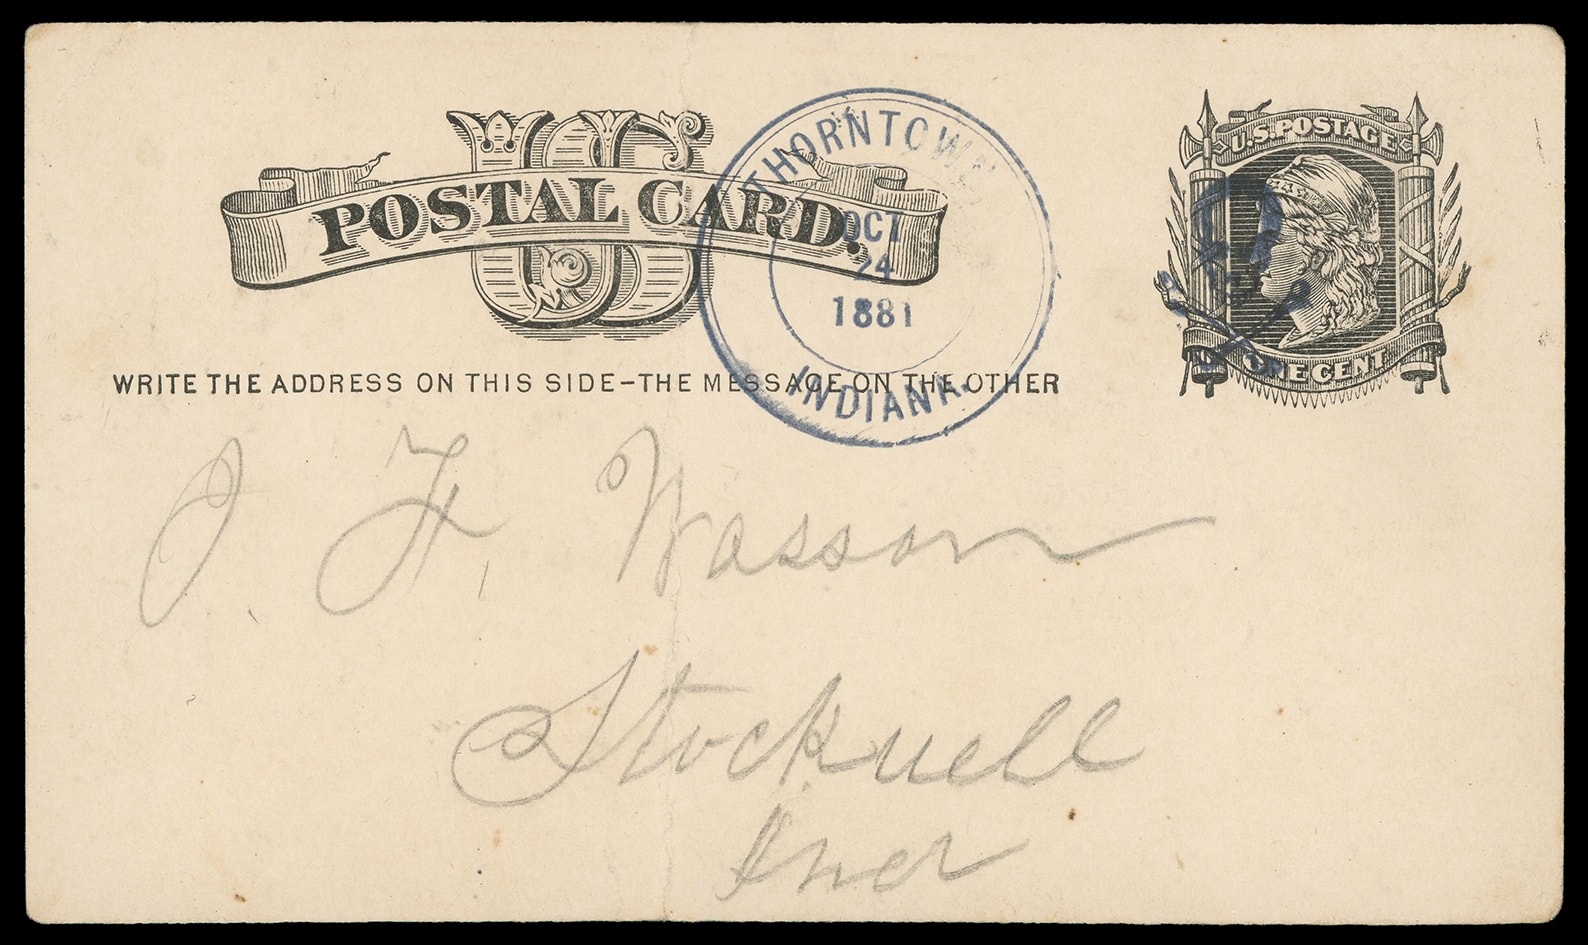 US
POSTAL CARD.
THORNTOWN
OCT
24
1881
INDIANA.
U.S. POSTAGE
ONE CENT
WRITE THE ADDRESS ON THIS SIDE-THE MESSAGE ON THE OTHER
J. F. Wasson
Stockwell
Ind